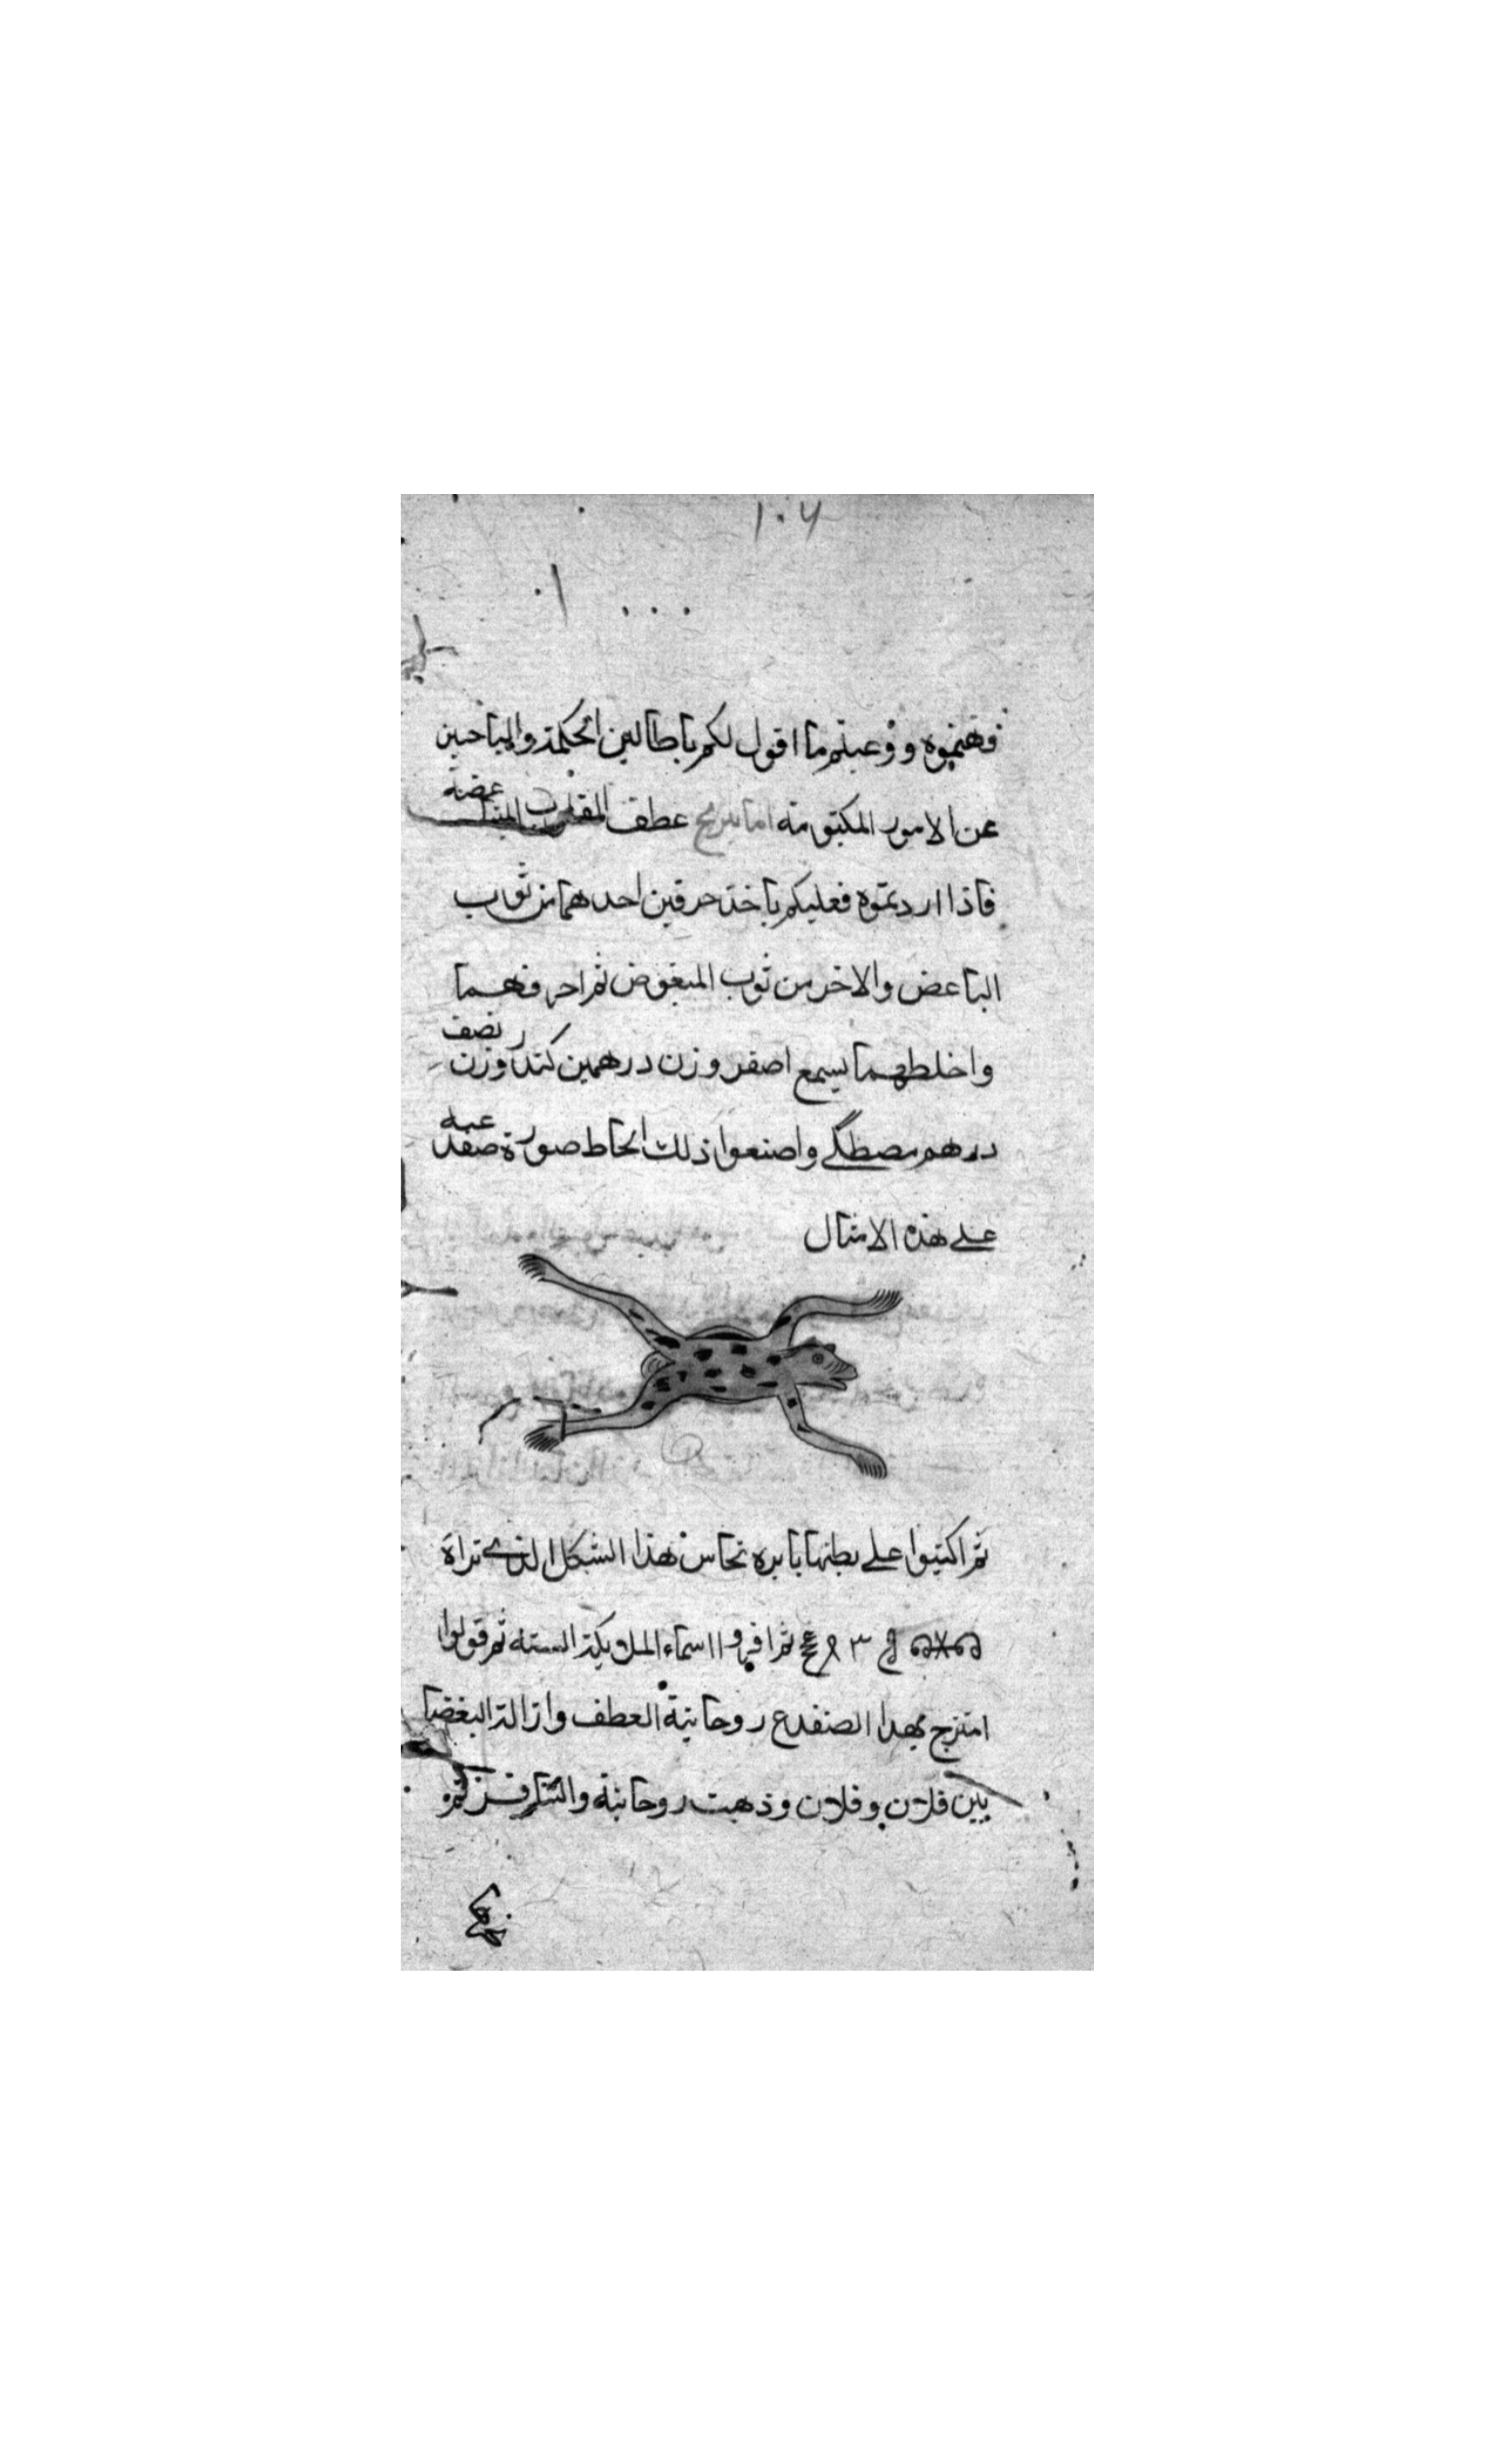 ١٠٦
فهنموه ووعيتم ما اقول لكم يا طالبين الحكمة والباحثين
عن الامور المكتومة اما نيرنج عطف القلوب المتباغضة
فاذا اردتموه فعليكم باخذ خرقتين احدهما من ثوب
الباغض والاخر من ثوب المبغوض ثم احرقهما
واخلطهما بشمع اصفر وزن درهمين كندر وزن نصف
درهم مصطكي واصنعوا ذلك الخلط صورة ضفدعة
على هذه الامثال
ثم اكتبوا على بطنها بابره نحاس هذا الشكل الذي تراه
٣ ثم اقروا اسماء الملايكة الستة ثم قولوا
امتزج بهذا الضفدع روحانية العطف وازالة البغضا
بين فلان وفلان وذهبت روحانية